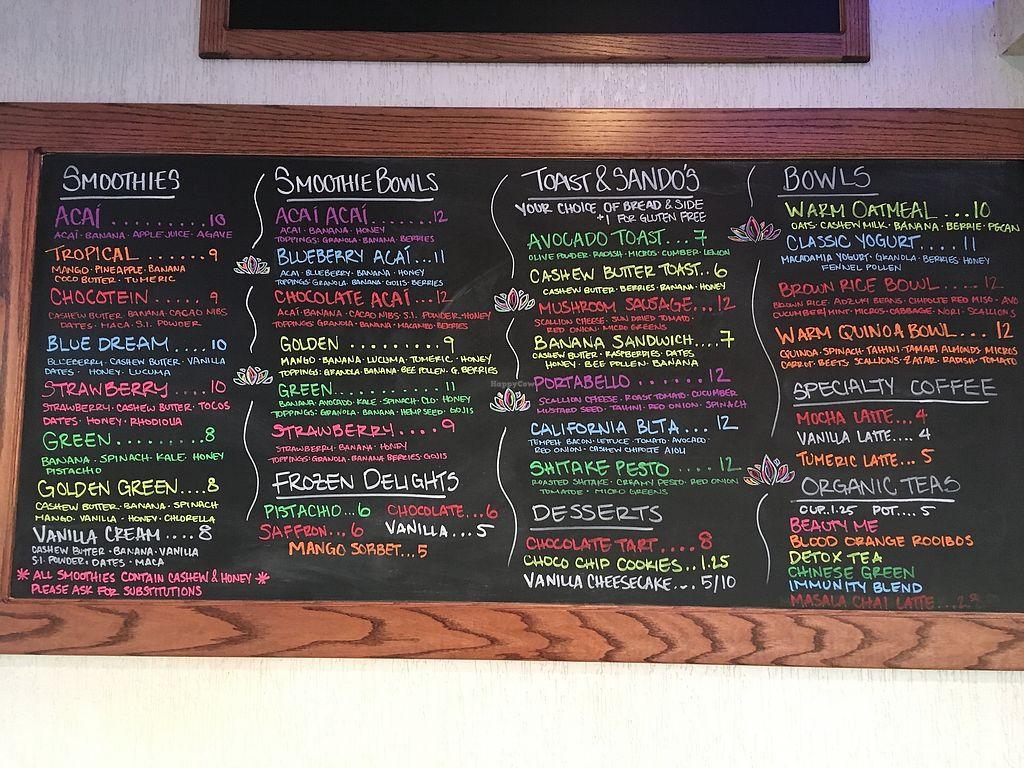 SMOOTHIES
ACAÍ .......... 10
ACAÍ · BANANA · APPLE JUICE · AGAVE
TROPICAL ....... 9
MANGO · PINEAPPLE · BANANA
COCO BUTTER · TUMERIC
CHOCOTEIN ..... 9
CASHEW BUTTER · BANANA · CACAO NIBS
DATES · MACA · S.I. POWDER
BLUE DREAM .... 10
BLUEBERRY · CASHEW BUTTER · VANILLA
DATES · HONEY · LUCUMA
STRAWBERRY .... 10
STRAWBERRY · CASHEW BUTTER · TOCOS
DATES · HONEY · RHODIOLA
GREEN ......... 8
BANANA · SPINACH · KALE · HONEY
PISTACHIO
GOLDEN GREEN .... 8
CASHEW BUTTER · BANANA · SPINACH
MANGO · VANILLA · HONEY · CHLORELLA
VANILLA CREAM .... 8
CASHEW BUTTER · BANANA · VANILLA
S.I. POWDER · DATES · MACA
* ALL SMOOTHIES CONTAIN CASHEW & HONEY *
PLEASE ASK FOR SUBSTITUTIONS
SMOOTHIE BOWLS
ACAÍ ACAÍ ....... 12
ACAI · BANANA · HONEY
TOPPINGS: GRANOLA · BANANA · BERRIES
BLUEBERRY ACAÍ ... 11
ACAI · BLUEBERRY · BANANA · HONEY
TOPPINGS: GRANOLA · BANANA · GOJIS · BERRIES
CHOCOLATE ACAÍ .... 12
ACAI · BANANA · CACAO NIBS · S.I. POWDER · HONEY
TOPPINGS: GRANOLA · BANANA · MACAMBO · BERRIES
GOLDEN .......... 9
MANGO · BANANA · LUCUMA · TUMERIC · HONEY
TOPPINGS: GRANOLA · BANANA · BEE POLLEN · G. BERRIES
GREEN .......... 11
BANANA · AVOCADO · KALE · SPINACH · HONEY
TOPPINGS: GRANOLA · BANANA · HEMP SEED · GOJIS
STRAWBERRY .... 9
STRAWBERRY · BANANA · HONEY
TOPPINGS: GRANOLA · BANANA · BERRIES · GOJIS
FROZEN DELIGHTS
PISTACHIO ... 6 CHOCOLATE ... 6
SAFFRON ... 6 VANILLA ... 5
MANGO SORBET ... 5
TOAST & SANDO'S
YOUR CHOICE OF BREAD & SIDE
+1 FOR GLUTEN FREE
AVOCADO TOAST ... 7
OLIVE POWDER · RADISH · MICROS · CUMBER · LEMON
CASHEW BUTTER TOAST .. 6
CASHEW BUTTER · BERRIES · BANANA · HONEY
MUSHROOM SAUSAGE .... 12
SCALLION CHEESE · SUN DRIED TOMATO ·
RED ONION · MICRO GREENS
BANANA SANDWICH .... 7
CASHEW BUTTER · RASPBERRIES · DATES
HONEY · BEE POLLEN · BANANA
PORTABELLO ...... 12
SCALLION CHEESE · ROAST TOMATO · CUCUMBER
MUSTARD SEED · TAHINI · RED ONION · SPINACH
CALIFORNIA BLTA .... 12
TEMPEH BACON · LETTUCE · TOMATO · AVOCADO ·
RED ONION · CASHEW CHIPOTE AIOLI
SHITAKE PESTO .... 12
ROASTED SHITAKE · CREAMY PESTO · RED ONION
TOMATOE · MICRO GREENS
DESSERTS
CHOCOLATE TART .... 8
CHOCO CHIP COOKIES .. 1.25
VANILLA CHEESECAKE ... 5/10
BOWLS
WARM OATMEAL ... 10
OATS · CASHEW MILK · BANANA · BERRIE · PECAN
CLASSIC YOGURT .... 11
MACADAMIA YOGURT · GRANOLA · BERRIES · HONEY
FENNEL POLLEN
BROWN RICE BOWL .... 12
BROWN RICE · ADZUKI BEANS · CHIPOLTE RED MISO · AVO
CUCUMBER/MINT · MICROS · CABBAGE · NORI · SCALLIONS
WARM QUINOA BOWL ... 12
QUINOA · SPINACH · TAHINI · TAMARI ALMONDS MICROS
CARROT · BEETS SCALLIONS · ZATAR RADISH · TOMATO
SPECIALTY COFFEE
MOCHA LATTE ... 4
VANILLA LATTE .... 4
TUMERIC LATTE ... 5
ORGANIC TEAS
CUP. 1.25 POT .... 5
BEAUTY ME
BLOOD ORANGE ROOIBOS
DETOX TEA
CHINESE GREEN
IMMUNITY BLEND
MASALA CHAI LATTE ...
HappyCow